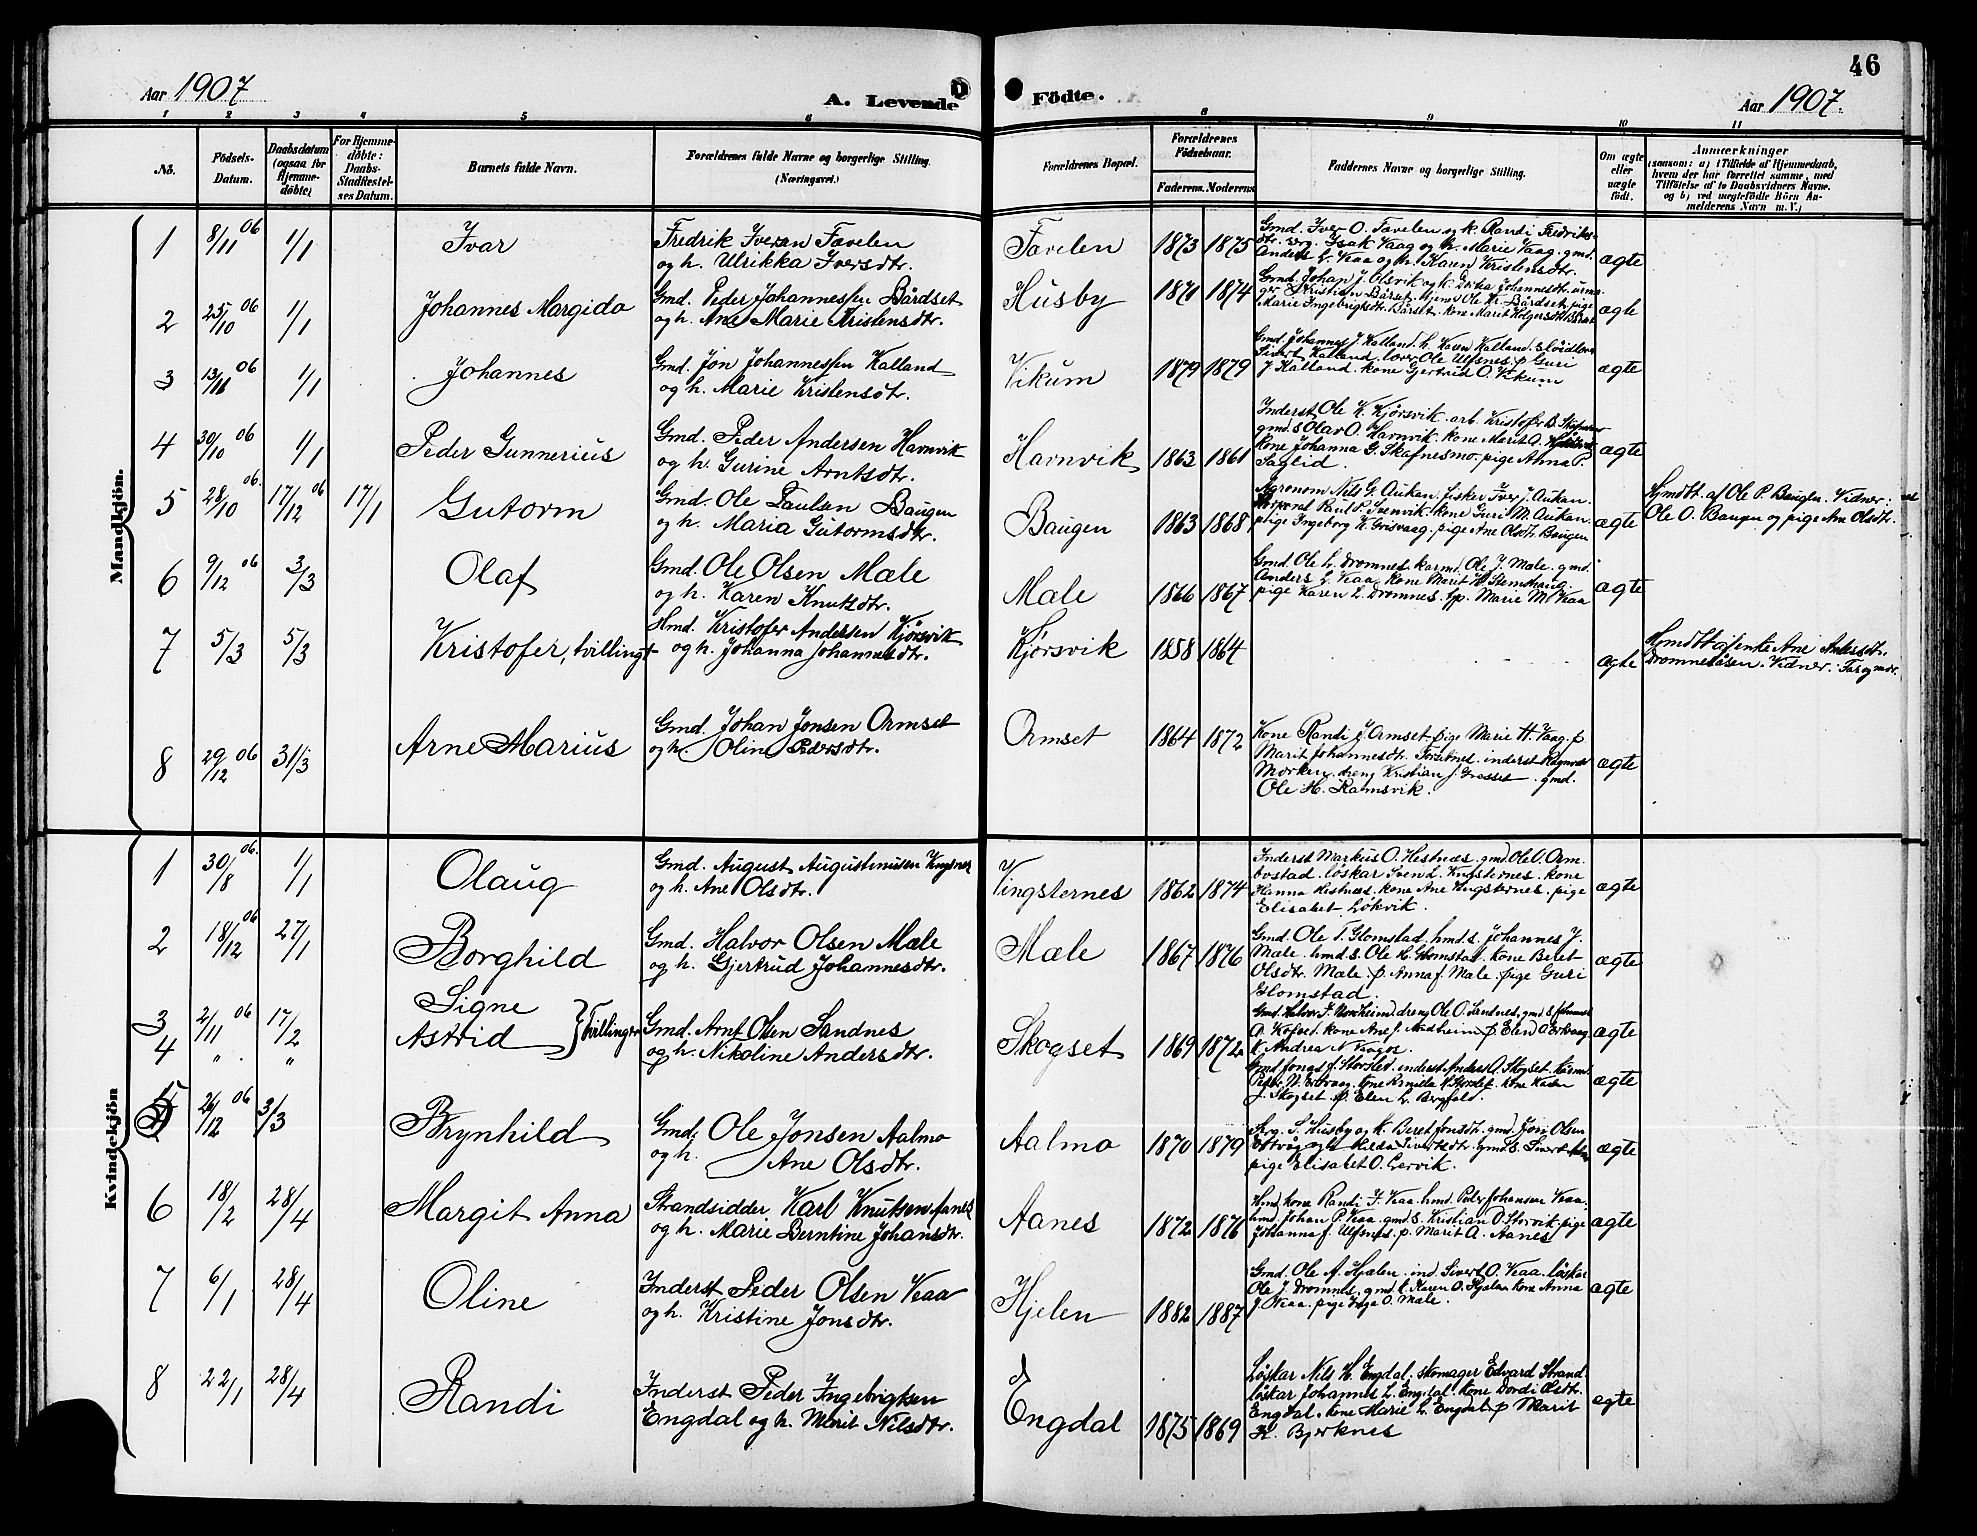 46
Aar 1907
A. Levende Födte.
Aar 1907.
1 2 3 4 5 6 8 9 10 11
No.
Födsels-
Datum.
Daabsdatum
(ogsaa for
Hjemme-
döbte)
For Hjemme-
döbte:
Daabs-
Stadfestel-
ses Datum.
Barnets fulde Navn.
Forældrenes fulde Navne og borgerlige Stilling.
(Næringsvei.)
Forældrenes Bopæl.
Forældrenes
Födselsaar.
Faderens. Moderens.
Faddernes Navne og borgerlige Stilling.
Om ægte
eller
uægte
födt.
Anmærkninger
(saasom: a) i Tilfælde af Hjemmedaab,
hvem der har forrettet samme, med
Tilföielse af to Daabsvidners Navne.
og b) ved uægtefödte Börn An-
melderens Navn m. V.)
Mandkjön.
1 8/11 06 1/1 Ivar
Fredrik Iversen Tævelen
og h. Ulrikka Iversdtr.
Tævelen 1873 1875
Gmd. Iver O. Tævelen og k. Randi Fredriks-
dtr. Isak Vaag og h. Marie Vaag. gmd.
Anders L. Veaa og h. Karen Kristensdtr.
ægte
2 25/10 06 1/1 Johannes Margido
Gmd. Peder Johannessen Bårdset
og h. Ane Marie Kristensdtr.
Husby 1871 1874
Gmd. Johan J. Olsvik og k. Dortea Johannesdtr. urma-
ger Kristian Bårset. Ole Kr. Bårdset. pige
Marie Ingebrigtsdtr. Bårset. kone Marit Holgersdtr. Bårset
ægte
3 13/11 06 1/1 Johannes
Gmd. Jon Johannessen Kalland
og h. Marie Kristensdtr.
Vikum 1879 1879
Gmd. Johannes J. Kalland. h. Karen Kalland.
Sivert Kalland. Ole Ulfsnes. p. Guri
J. Kalland. kone Gjertrud O. Vikum
ægte
4 30/10 06 1/1 Peder Gunnerius
Gmd. Peder Andersen Havnvik
og h. Gurine Arntsdtr.
Havnvik 1863 1861
Inderst Ole K. Kjørsvik. arb. Kristofer
gmd. s. Olav O. Havnvik. kone Marit O.
kone Johanna G. Skafnesmo. pige Anna P.
Saglid.
ægte
5 28/10 06. 17/12 06 17/1 Gutorm
Gmd. Ole Paulsen Baugen
og h. Maria Gutormsdtr.
Baugen 1863 1868
Agronom Nils G. Aukan. fisker Iver J. Aukan.
Korporal Paul P. Svenvik. kone Guri M. Aukan.
pige Ingeborg K. Grisvaag. pige Ane Olsdtr. Baugen
ægte
Hjmdt. af Ole P. Baugen. Vidner:
Ole O. Baugen og pige Ane Olsdtr.
6 9/12 06 3/3 Olaf
Gmd. Ole Olsen Mæle
og h. Karen Knutsdtr.
Mæle 1866 1867
Gmd. Ole L. Dromnes. karmd. Ole J. Mæle. gmd.
Anders L. Veaa. kone Marit H. Stemshaug.
pige Karen L. Dromnes. p. Marie M. Veaa
ægte
7 5/3 5/3 Kristofer, tvilling
Hmd. Kristofer Andersen Kjørsvik
og h. Johanna Johannesdtr.
Kjørsvik 1858 1864
ægte
Hjemdt. af enke Ane Andersdtr.
Dromnesåsen. Vidner: Far og mor.
8 29/12 06 31/3 Arne Marius
Gmd. Johan Jonsen Ormset
og h. Oline Pedersdtr.
Ormset 1864 1872
Kone Randi J. Ormset. pige Marie H. Vaag. p.
Marit Johannesdtr. Forsetnes. inderst
Morken. dreng Kristian J. Grosset. gmd.
Ole H. Ramsvik.
ægte
Kvindekjön
1 30/8 06. 1/1 Olaug
Gmd. August Augustinusen
og h. Ane Olsdtr.
Vingsternes 1862 1874
Inderst Markus O. Hestnæs. gmd. Ole O. Orm-
bostad. løskar Svend L. Vingsternes. kone
Hanna Hestnæs. kone Ane Vingsternes. pige
Elisabet Løkvik.
ægte
2 18/12 06 27/1 Borghild
Gmd. Halvor Olsen Mæle
og h. Gjertrud Johannesdtr.
Mæle 1867 1876
Gmd. Ole T. Glomstad. hmd. s. Johannes J.
Mæle. hmd. s. Ole H. Glomstad. kone Beret
Olsdtr. Mæle. p. Anna J. Mæle. pige Guri
Glomstad.
ægte
3 2/11 06 17/2 Signe
4 " " Astrid } Tvillinger
Gmd. Arnt Olsen Sandnes
og h. Nikoline Andersdtr.
Skogset 1869 1872
Gmd. Halvor J. Nordheim. dreng Ole O. Sandnes. gmd. s.
O. Kofoed. kone Ane J. Nordheim. p. Elen O. Ertvaag.
k. Andrea N. Vaagos.
ægte
Gmd. Jonas J. Storslet. inderst Anders O. Skogset.
Peder N. Ertvaag. kone
J. Skogset. p. Elen L. Bergfald.
ægte
5 26/12 06 3/3 Brynhild
Gmd. Ole Jonsen Aalmo
og h. Ane Olsdtr.
Aalmo 1870 1879
Skrg. S. Husby og k. Beret Jonsdtr. gmd. Jon Olsen
og h. Hilda Sivertsdtr. gmd. s. Sivert
pige Elisabet O. Lervik.
ægte
6 18/2 28/4 Margit Anna
Strandsidder Karl Knutsen Aanes
og h. Marie Berntine Johansdtr.
Aanes 1872 1876
Hmd. kone Randi J. Veaa. hmd. Peder Johansen Veaa.
hmd. Johan P. Veaa. gmd. s. Kristian O. Storvik. pige
Johanna J. Ulfsnes. p. Marit A. Aanes
ægte
7 6/1 28/4 Oline
Inderst Peder Olsen Veaa
og h. Kristine Jonsdtr.
Hjelen 1882 1887
Gmd. Ole A. Hjælen. ind. Sivert O. Veaa. løskar
Ole J. Dromnes. gmd. k. Karen O. Hjælen. kone Anna
J. Veaa. pige Inga O. Mæle.
ægte
8 22/1 28/4 Randi
Inderst Peder Ingebrigtsen
Engdal og h. Marit Nilsdtr.
Engdal 1875 1869
Løskar Nils H. Engdal. skomager Edvard Strand.
løskar Johannes L. Engdal. kone Dordi Olsdtr.
Engdal. kone Marie L. Engdal. p. Marit
K. Bjerknes
ægte